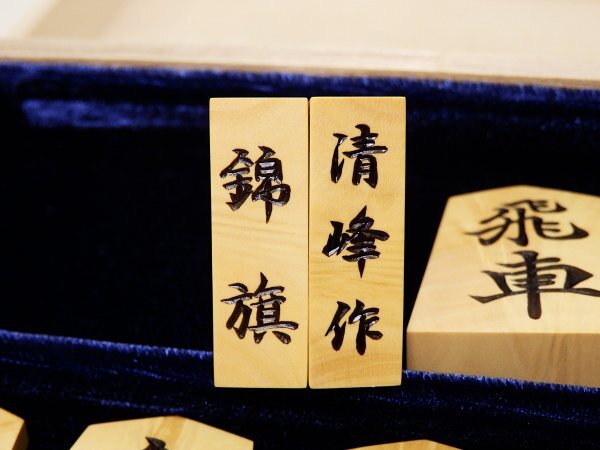 清峰作
錦旗
飛車